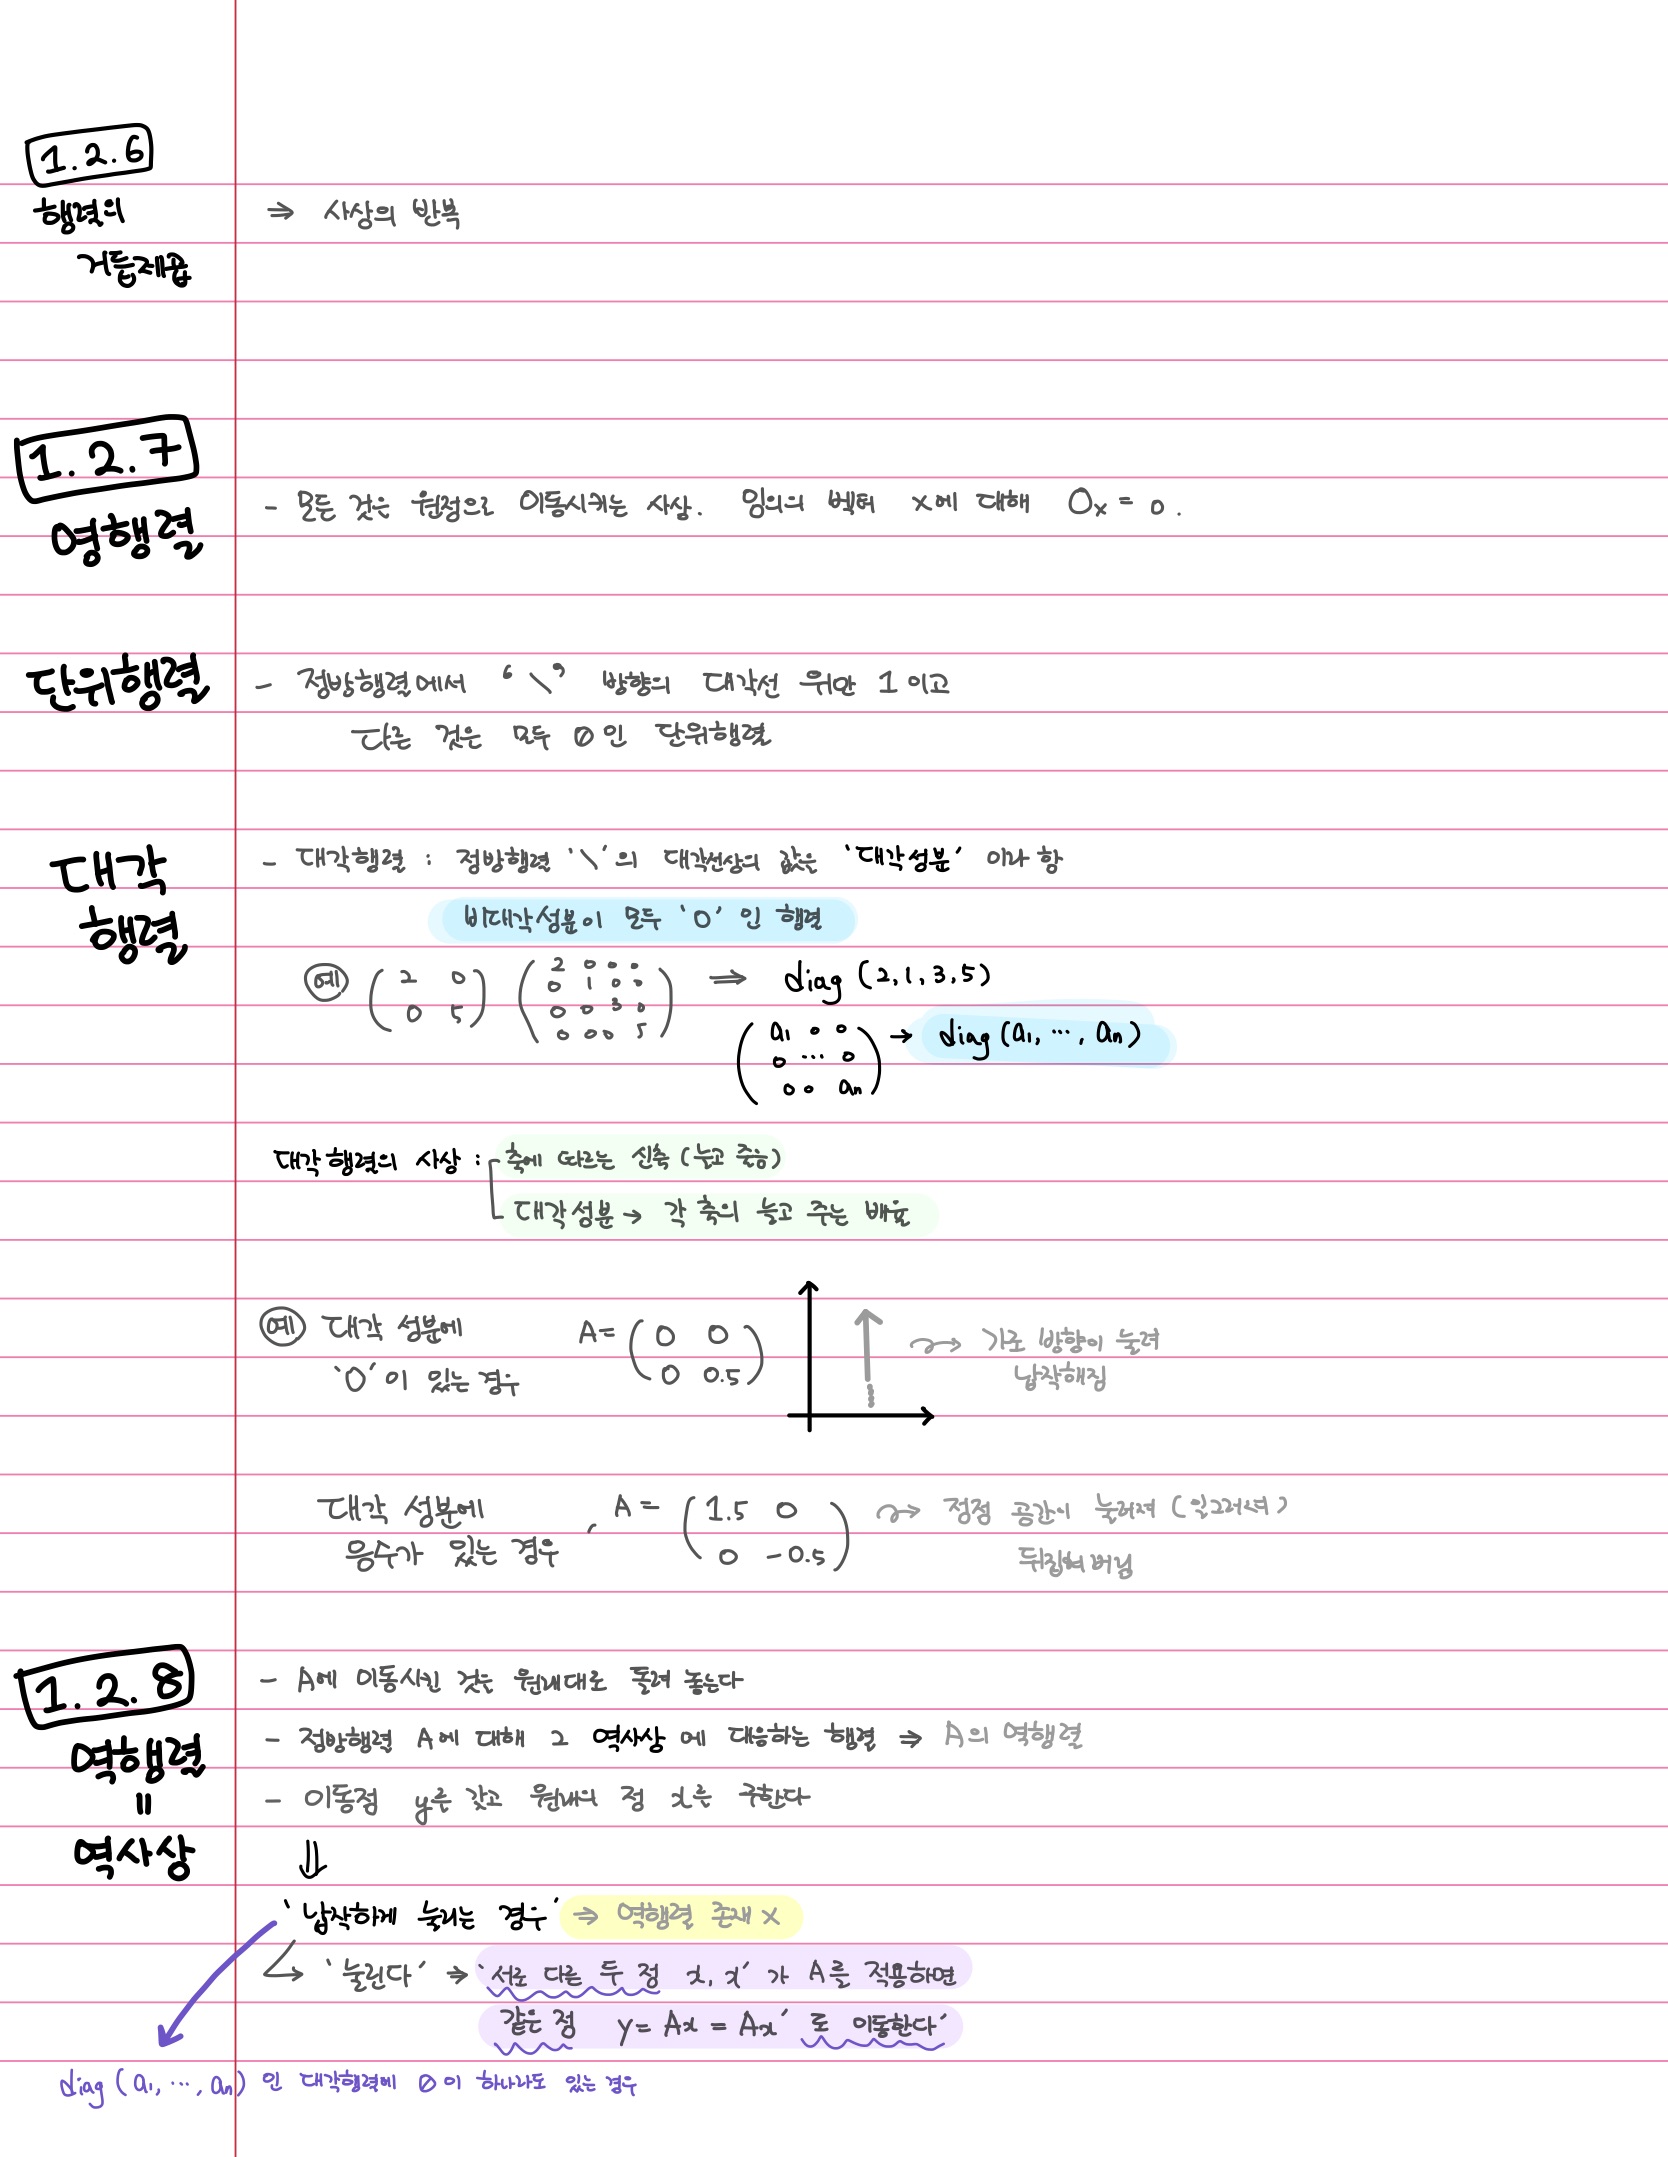 1.2.6
행렬의
거듭제곱
⇒ 사상의 반복
1.2.7
영행렬
- 모든 것은 원점으로 이동시키는 사상. 임의의 벡터 x에 대해 Ox = o.
단위행렬
- 정방행렬에서 ‘\’ 방향의 대각선 위만 1이고
다른 것은 모두 0인 단위행렬
대각
행렬
- 대각행렬 : 정방행렬 '\'의 대각선상의 값은 '대각성분' 이라 함
비대각성분이 모두 '0' 인 행렬
예 (2 0 / 0 5) (2 0 0 0 / 0 1 0 0 / 0 0 3 0 / 0 0 0 5) ⇒ diag (2,1,3,5)
(a₁ 0 0 / 0 ... 0 / 0 0 aₙ) → diag(a₁, ..., aₙ)
대각행렬의 사상 : 축에 따르는 신축 (늘고 줄음)
대각성분 → 각 축의 늘고 주는 배율
예 대각 성분에
'0'이 있는 경우
A= (0 0 / 0 0.5)
가로 방향이 눌려
납작해짐
대각 성분에
음수가 있는 경우, A = (1.5 0 / 0 -0.5)
정점 공간이 눌러져 (일그러셔)
뒤집혀버림
1.2.8
역행렬
=
역사상
- A에 이동시킨 것은 원래대로 돌려 놓는다
- 정방행렬 A에 대해 그 역사상 에 대응하는 행렬 ⇒ A의 역행렬
- 이동점 y를 갖고 원래의 점 x를 구한다
⇓
'납작하게 눌리는 경우' ⇒ 역행렬 존재 x
→ '눌린다' ⇒ '서로 다른 두 점 x, x' 가 A를 적용하면
같은 점 y= Ax = Ax' 로 이동한다'
diag (a₁, ..., aₙ) 인 대각행렬에 0이 하나라도 있는 경우